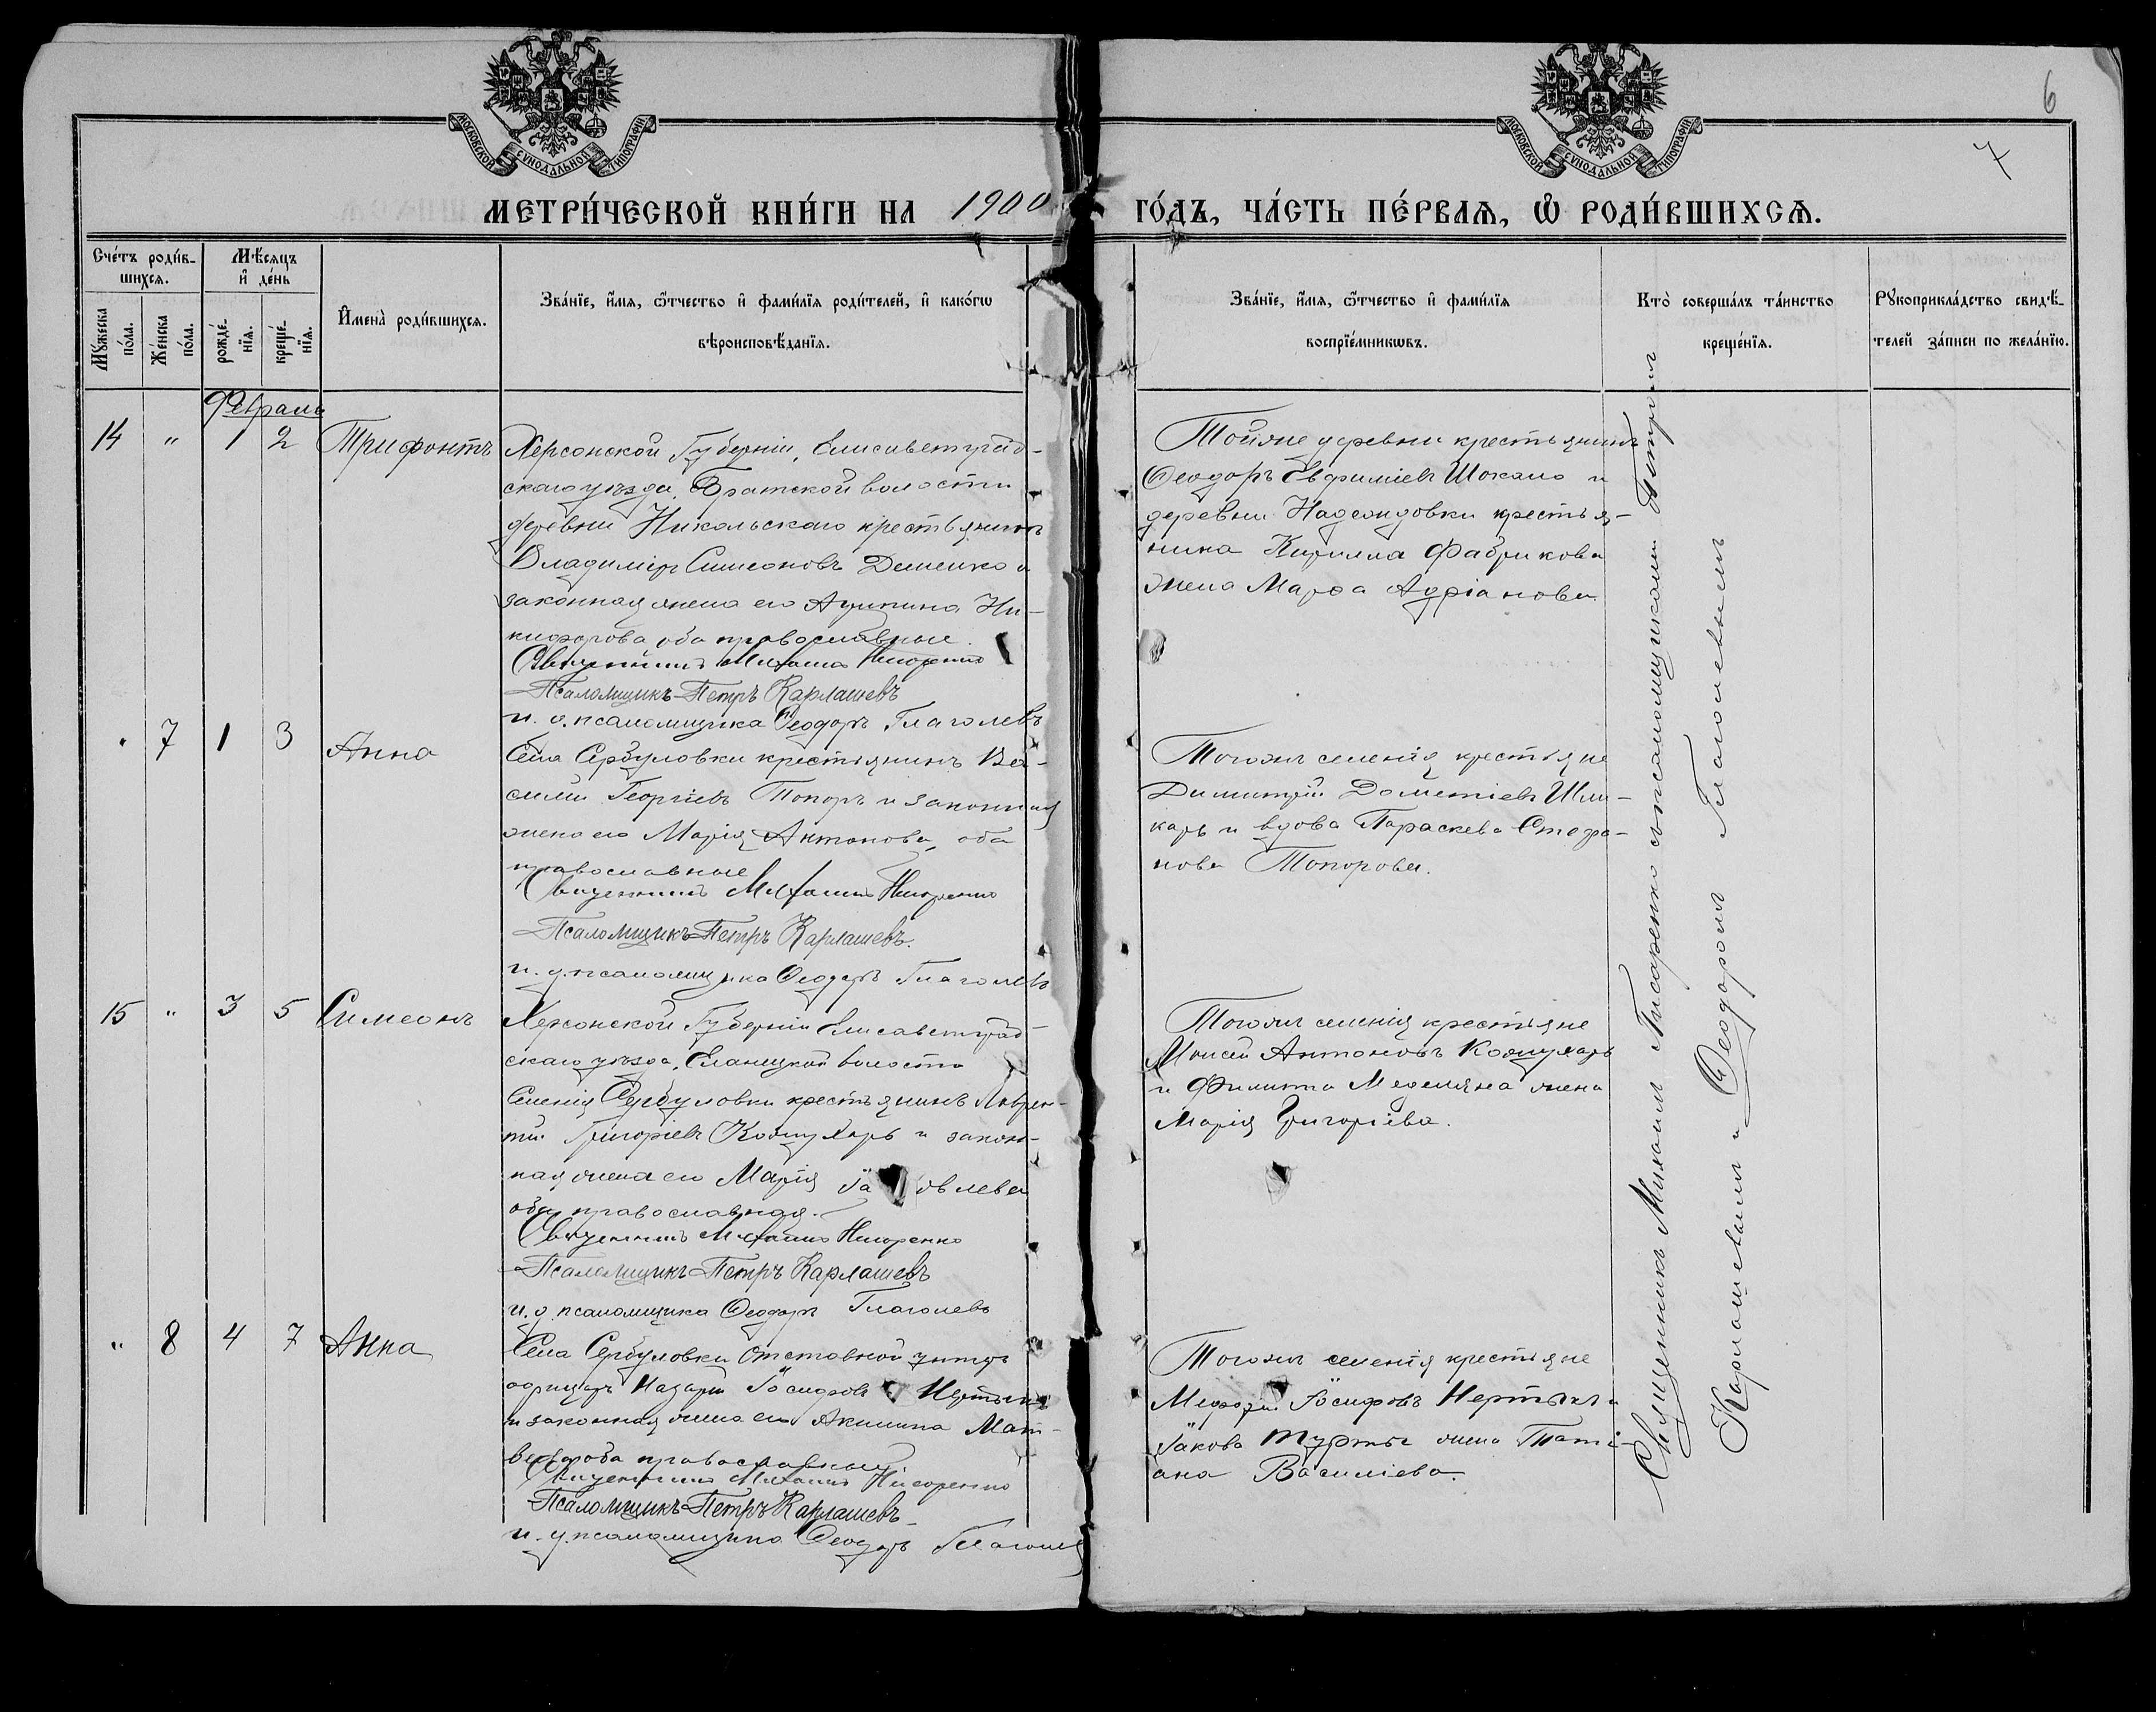 МОСКОВСКОЙ СѴНОДАЛЬНОЙ ТИПОГРАФІИ
МОСКОВСКОЙ СѴНОДАЛЬНОЙ ТИПОГРАФІИ
6
7
МЕТРИ́ЧЕСКОЙ КНИ́ГИ НА 1900 ГО́ДЪ, ЧА́СТЬ ПЕ́РВАѦ, Ѡ҆ РОДИ́ВШИХСѦ.
Сче́тъ роди́в-
шихсѧ.
Мѣ́сѧцъ
и҆ де́нь
Мꙋ́жеска
по́ла.
Же́нска
по́ла.
рожде́-
нїѧ.
креще́-
нїѧ.
И҆мена̀ роди́вшихсѧ.
Зва́нїе, и҆́мѧ, ѻ҆́тчество и҆ фами́лїѧ роди́телей, и҆ како́гѡ
вѣроисповѣ́данїѧ.
Зва́нїе, и҆́мѧ, ѻ҆́тчество и҆ фами́лїѧ
воспрїе́мникѡвъ.
Кто̀ соверша́лъ та́инство
креще́нїѧ.
Рꙋкоприкла́дство свидѣ́-
телей за́писи по жела́нїю.
Февраль
14 " 1 2 Трифонтъ
Херсонской Губерніи, Елисаветград-
скаго уѣзда, Братской волости
деревни Никольскаго крестьянинъ
Владиміръ Симеоновъ Деменко и
законная жена его Агрипина Ни-
кифорова, оба православные.
Священникъ Михаилъ Писаренко
Псаломщикъ Петръ Карлашевъ
и. д. псаломщика Ѳеодоръ Глаголевъ
Тойже деревни крестьянинъ
Ѳеодоръ Евфиміевъ Шокало и
деревни Надеждовки крестья-
нина Кирилла Фабрикова
жена Марѳа Адріанова
" 7 1 3 Анна
Села Сербуловки крестьянинъ Ва-
силій Георгіевъ Топоръ и законная
жена его Марія Антонова, оба
православные
Священникъ Михаилъ Писаренко
Псаломщикъ Петръ Карлашевъ.
и. д. псаломщика Ѳеодоръ Глаголевъ
Тогожъ селенія крестьяне
Димитрій Дометіевъ
и вдова Параскева Стефа-
нова Топорова.
15 " 3 5 Симеонъ
Херсонской Губерніи Елисаветград-
скаго уѣзда, Еланецкой волости
Селенія Сербуловки крестьянинъ Лаврен-
тій Григоріевъ Кожухарь и закон-
ная жена его Марія Іаковлева
оба православная.
Священникъ Михаилъ Писаренко
Псаломщикъ Петръ Карлашевъ
и. д. псаломщика Ѳеодоръ Глаголевъ
Тогожъ селенія крестьяне
Моисей Антоновъ Кожухарь
и Филиппа Меделяна жена
Марія Григоріева.
" 8 4 7 Анна
Села Сербуловки отставной унтеръ
офицеръ Назарій Іосифовъ
и законная жена его Акилина Мат-
вѣева православные
Священникъ Михаилъ Писаренко
Псаломщикъ Петръ Карлашевъ
и. д. псаломщика Ѳеодоръ Глаголевъ
Тогожъ селенія крестьяне
Меѳодій Іосифовъ Нертыкъ и
Іакова Турты жена Таті-
ана Василіева.
Священникъ Михаилъ Писаренко съ псаломщиками Петромъ
Карлашевымъ и Ѳеодоромъ Глаголевымъ